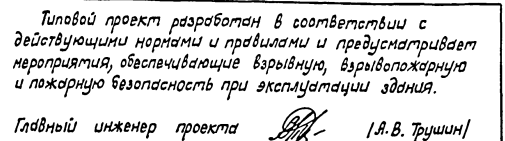 Типовой проект разработан в соответствии с
действующими нормами и правилами и предусматривает
мероприятия, обеспечивающие взрывную, взрывопожарную
и пожарную безопасность при эксплуатации здания.
Главный инженер проекта /А.В. Трушин/